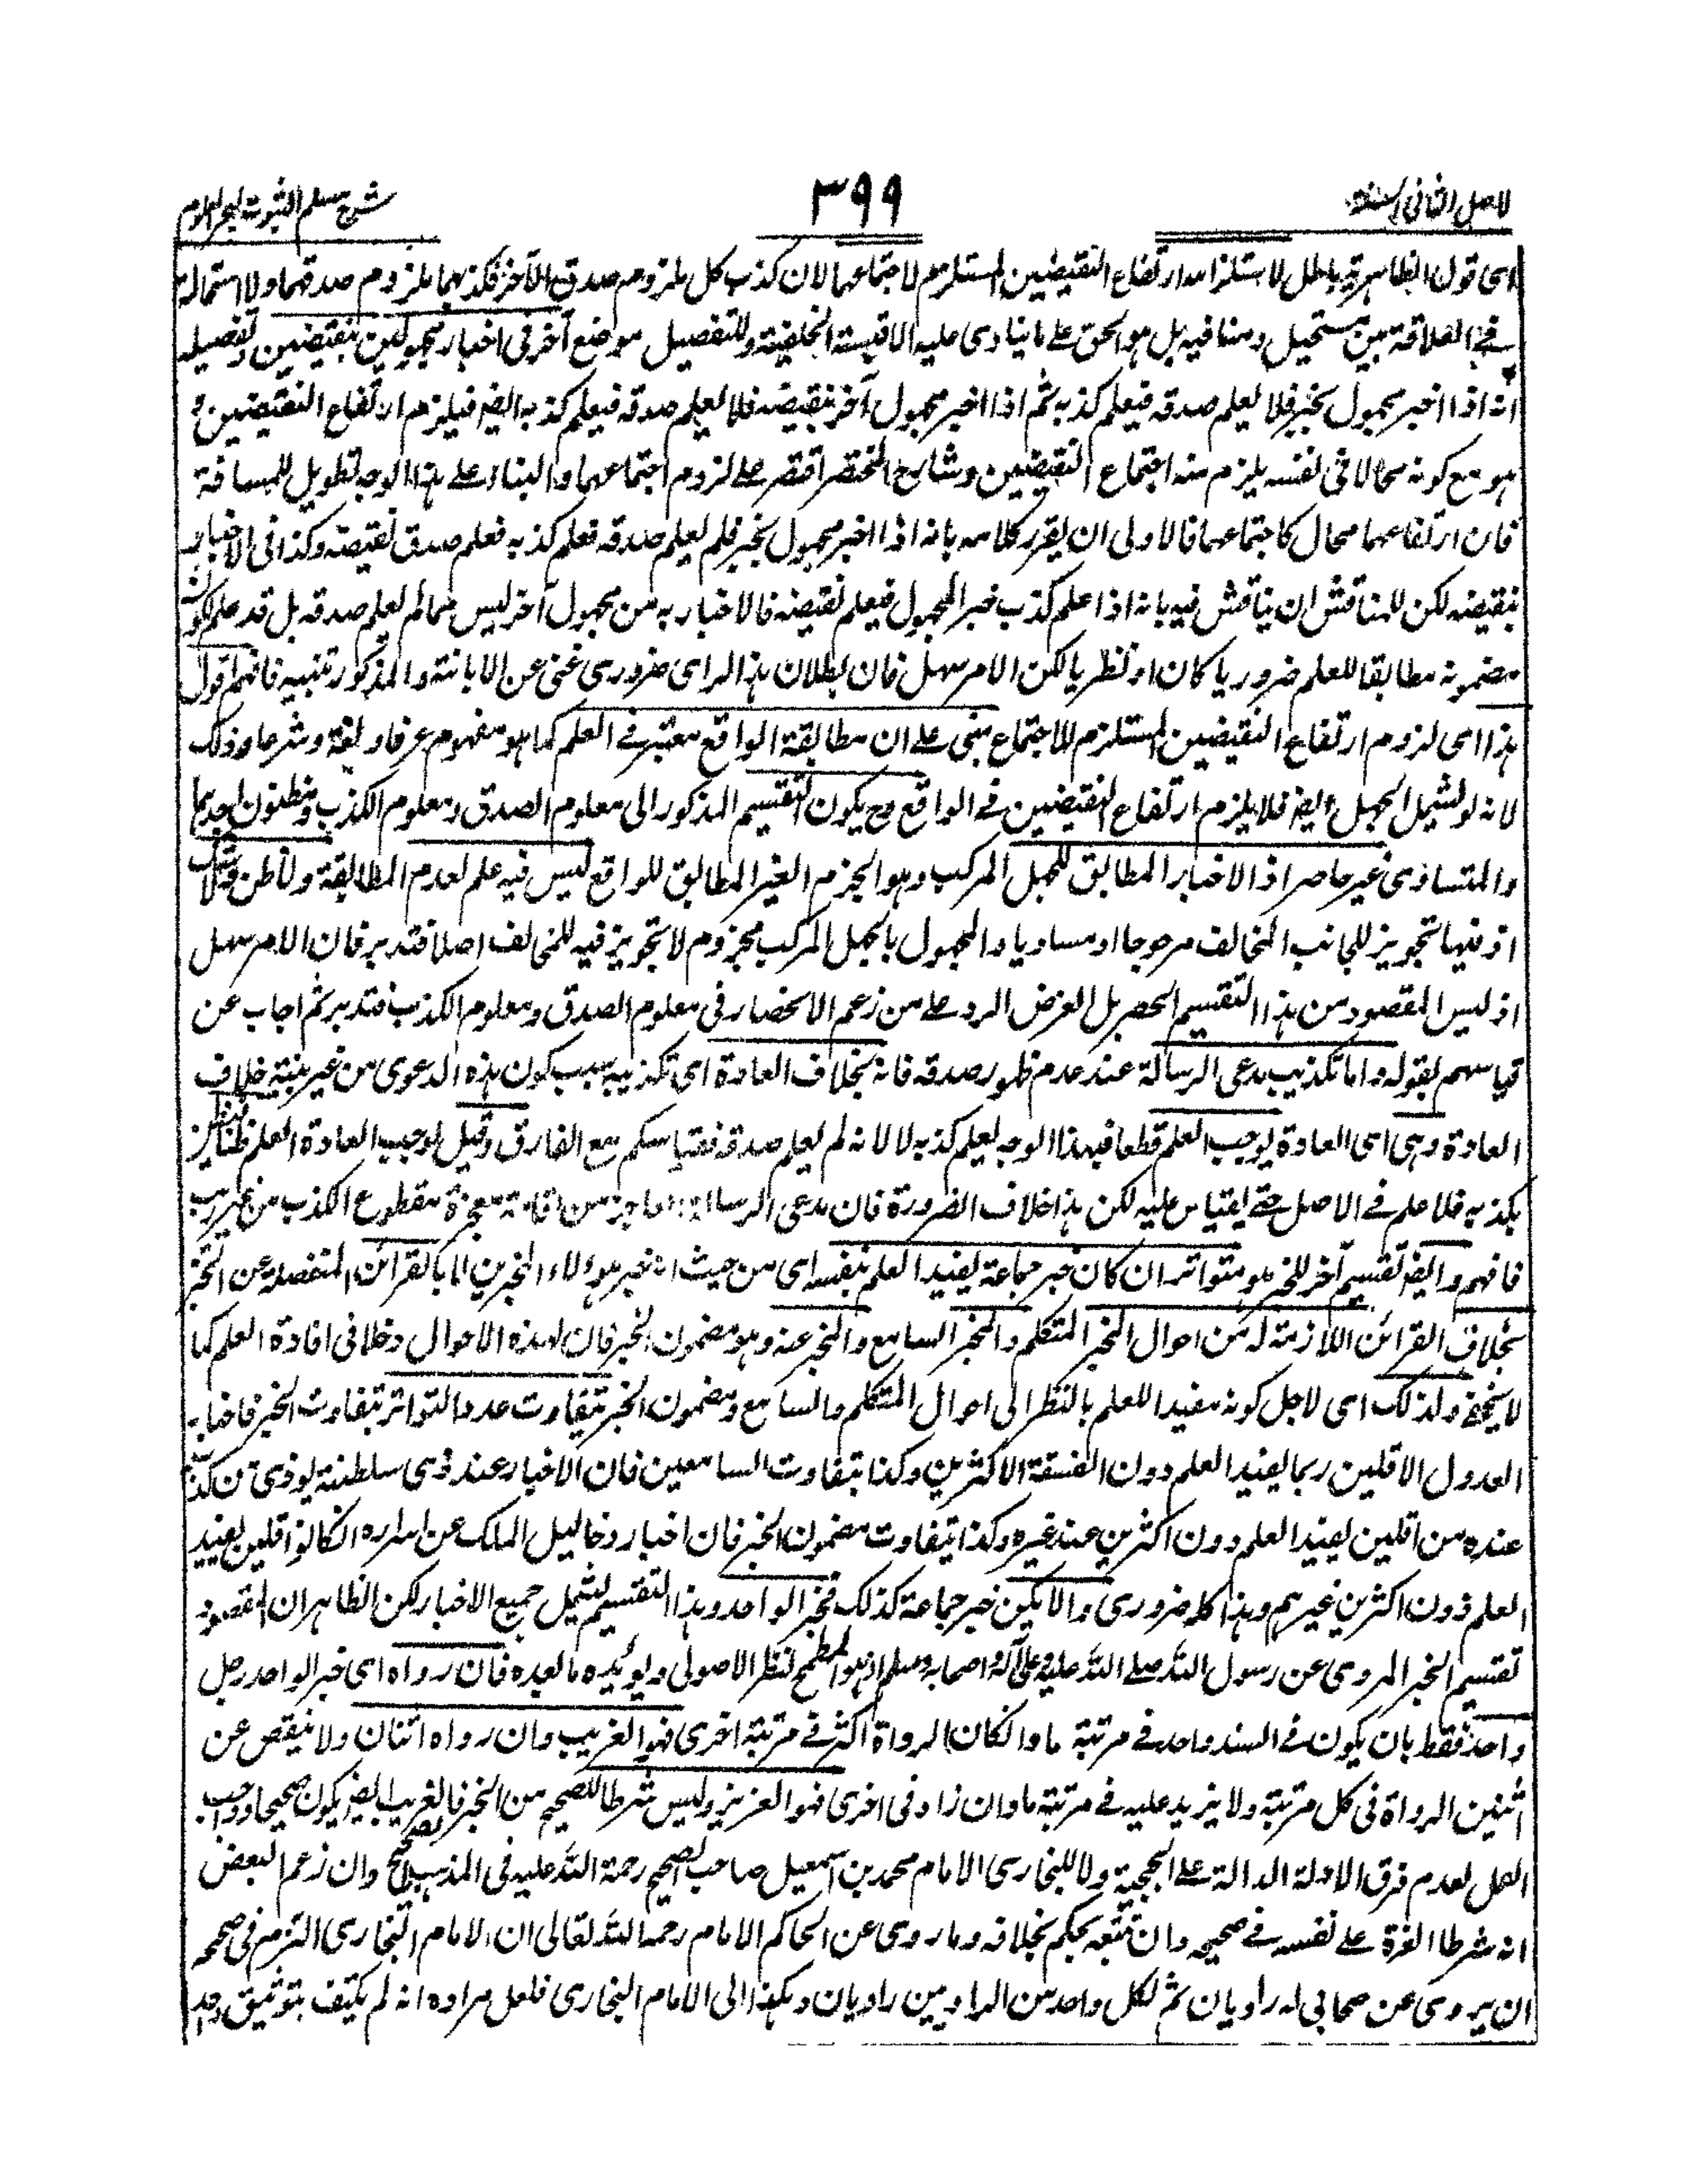 الاصل الثانى السنة
٣٩٩
شرح مسلم الثبوت لبحر العلوم
اى قول الظاهرية باطل لاستلزامه ارتفاع النقيضين المستلزم لاجتماعهما لان كذب كل ملزوم صدق الآخر فكذبهما ملزوم صدقهما ولا استحالة
فى العلاقة بين مستحيل ومنافيه بل هو الحق على ما ينادى عليه الاقيسة الخلفية وللتفصيل موضع آخر فى اخبار مجهولين بنقيضين وتفصيله
انه اذا اخبر مجهول بخبر فلا يعلم صدقه فيعلم كذبه ثم اذا اخبر مجهول آخر بنقيضه فلا يعلم صدقه فيعلم كذبه ايضا فيلزم ارتفاع النقيضين و
هو مع كونه محالا فى نفسه يلزم منه اجتماع النقيضين وشارح المختصر اقتصر على لزوم اجتماعهما والبناء على هذا الوجه تطويل للمسافة
فان ارتفاعهما محال كاجتماعهما فالاولى ان يقرر كلامه بانه اذا اخبر مجهول بخبر فلم يعلم صدقه فعلم كذبه فعلم صدق نقيضه وكذا فى الاخبار
بنقيضه لكن للمناقش ان يناقش فيه بانه اذا علم كذب خبر المجهول فيعلم نقيضه فالاخبار به من مجهول آخر ليس مما لم يعلم صدقه بل قد علم كون
مضمونه مطابقا للعلم ضروريا كان او نظريا لكن الامر سهل فان بطلان هذا الراى ضرورى غنى عن الابانة والمذكور تنبيه فافهم اقول
هذا اى لزوم ارتفاع النقيضين المستلزم للاجتماع مبنى على ان مطابقة الواقع معتبر فى العلم كما هو مفهوم عرفا ولغة وشرعا وذلك
لانه لو شمل الجهل ايضا فلا يلزم ارتفاع النقيضين فى الواقع وح يكون التقسيم المذكور الى معلوم الصدق ومعلوم الكذب ومظنون احدهما
والمتساوى غير حاصر اذ الاخبار المطابق للجهل المركب وهو الجزم الغير المطابق للواقع ليس فيه علم لعدم المطابقة ولا ظن ولا شك
اذ فيها تجويز للجانب المخالف مرجوحا او مساويا والمجهول بالجهل المركب مجزوم لا تجويز فيه للمخالف اصلا فتدبر فان الامر سهل
اذ ليس المقصود من هذا التقسيم الحصر بل الغرض الرد على من زعم الانحصار فى معلوم الصدق ومعلوم الكذب فتدبر ثم اجاب عن
قياسهم بقوله واما تكذيب مدعى الرسالة عند عدم ظهور صدقه فانه بخلاف العادة اى تكذيبه بسبب كون هذه الدعوى من غير بينة خلاف
العادة وهى اى العادة يوجب العلم قطعا فبهذا الوجه يعلم كذبه لا لانه لم يعلم صدقه فقياسكم مع الفارق وقيل يوجب العادة العلم ظنا فيظن
بكذبه فلا علم فى الاصل حتى يقاس عليه لكن هذا خلاف الضرورة فان مدعى الرسالة العاجز من اقامة معجزة مقطوع الكذب من غير ريب
فافهم وايضا تقسيم آخر للخبر هو متواتر ان كان خبر جماعة يفيد العلم بنفسه اى من حيث انه خبر هؤلاء المخبرين لا بالقرائن المنفصلة عن الخبر
بخلاف القرائن اللازمة له من احوال المخبر المتكلم والمخبر السامع والمخبر عنه وهو مضمون الخبر فان لهذه الاحوال دخلا فى افادة العلم كما
لا يخفى ولذلك اى لاجل كونه مفيدا للعلم بالنظر الى احوال المتكلم والسامع ومضمون الخبر يتفاوت عدد التواتر بتفاوت الخبر فاخبار
العدول الاقلين ربما يفيد العلم دون الفسقة الاكثرين وكذا بتفاوت السامعين فان الاخبار عند ذى سلطنة يوذى من كذب
عنده من اقلين يفيد العلم دون اكثرين عند غيره وكذا يتفاوت مضمون الخبر فان اخبار دخاليل الملك عن اسراره ان كانوا قلين يفيد
العلم دون اكثرين غيرهم وهذا كله ضرورى والا يكن خبر جماعة كذلك فخبر الواحد وهذا التقسيم يشمل جميع الاخبار لكن الظاهر ان المقصود
تقسيم الخبر المروى عن رسول الله صلى الله عليه وعلى آله واصحابه وسلم اذ هو المطمح لنظر الاصولى ويؤيده ما بعده فان رواه اى خبر الواحد رجل
واحد فقط بان يكون فى السند واحد فى مرتبة ما وان كان الرواة اكثر فى مرتبة اخرى فهو الغريب وان رواه اثنان ولا ينقص عن
اثنين الرواة فى كل مرتبة ولا يزيد عليه فى مرتبة ما وان زاد فى اخرى فهو العزيز وليس شرطا للصحيح من الخبر فالغريب ايضا يكون صحيحا وواجب
العمل لعدم فرق الادلة الدالة على الحجية ولا للبخارى الامام محمد بن اسمعيل صاحب الصحيح رحمة الله عليه فى المذهب الصحيح وان زعم البعض
انه شرطا العزة على نفسه فى صحيحه وان تتبعه يحكم بخلافه وما روى عن الحاكم الامام رحمه الله تعالى ان الامام البخارى التزم فى صحيحه
ان يروى عن صحابى له راويان ثم لكل واحد من الراويين راويان وهكذا الى الامام البخارى فلعل مراده انه لم يكتف بتوثيق واحد